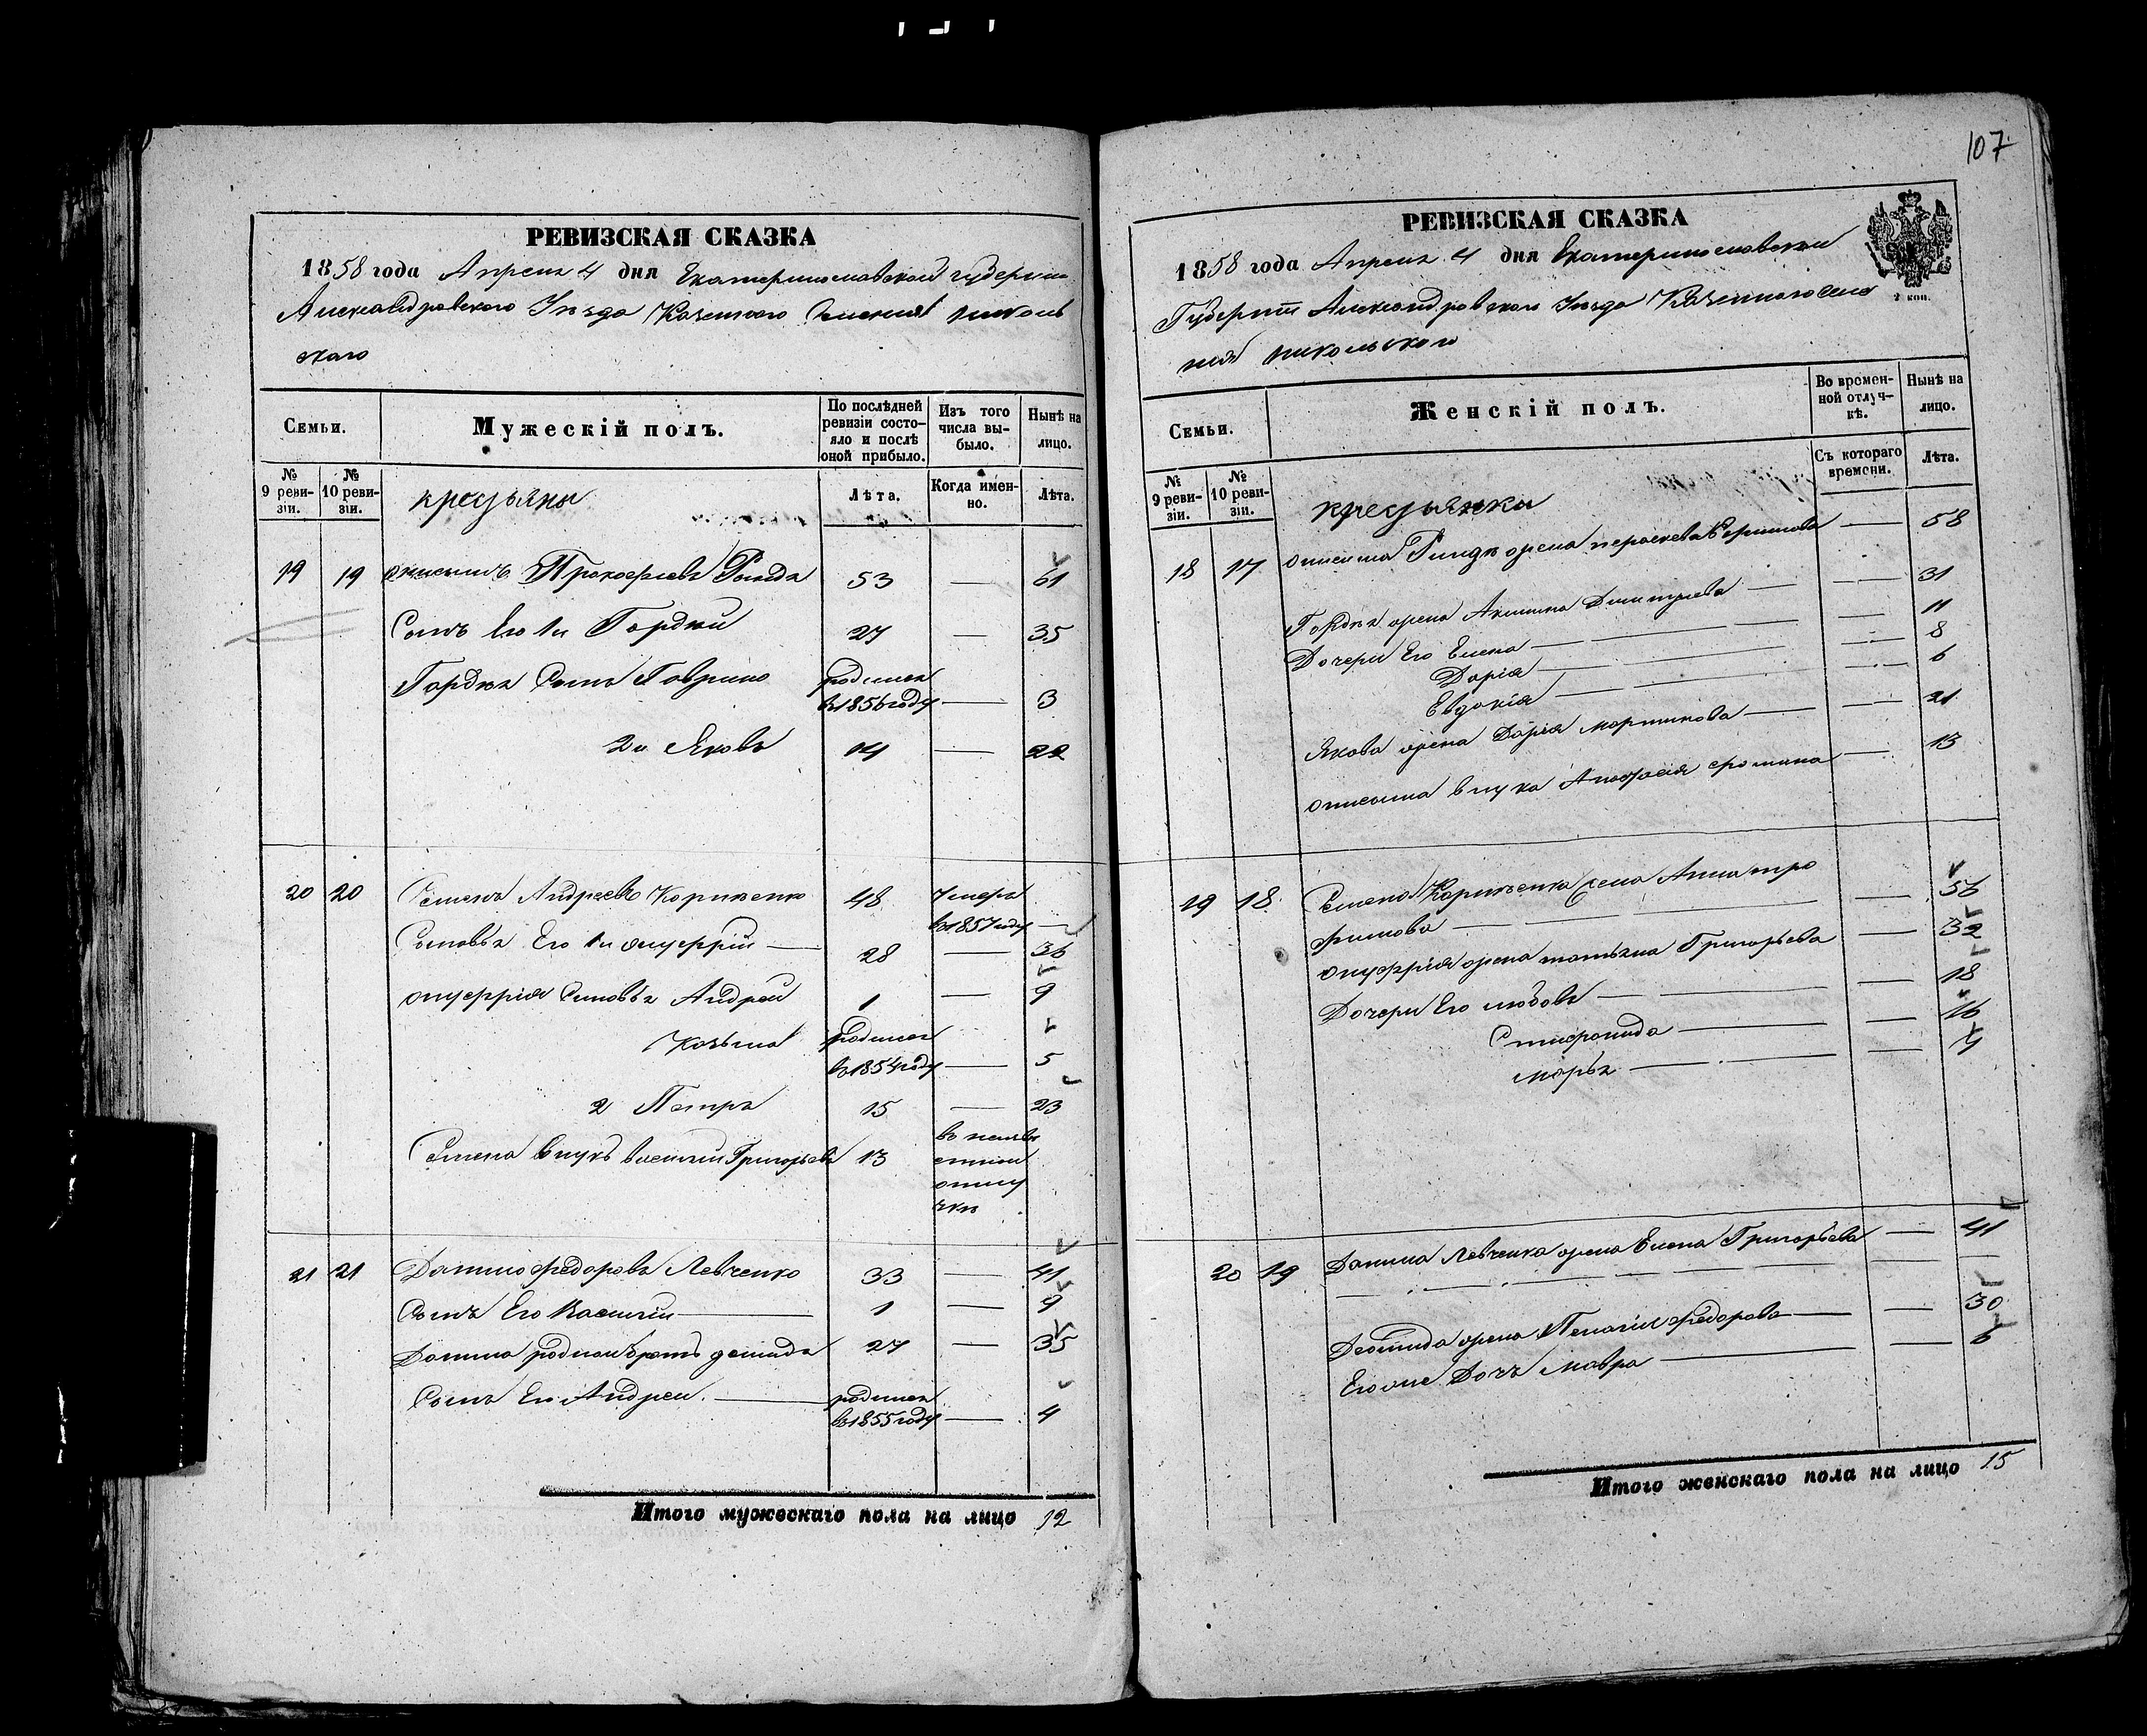 107
РЕВИЗСКАЯ СКАЗКА
1858 года Апреля 4 дня Екатеринославской губернии
Александровского Уезда Казенного Селения николь
скаго
Семьи.
Мужескій полъ.
По послѣдней ревизіи состояло и послѣ оной прибыло.
Изъ того числа выбыло.
Нынѣ на лицо.
№ 9 ревизіи.
№ 10 ревизіи.
крестьяны
Лѣта.
Когда именно.
Лѣта.
19 19 Прокофіевъ 53 — 61
Сынъ Его 1й Гордей 27 — 35
Гордея Сынъ Гаврило родился в 1856 году — 3
2й Яковъ 14 — 22
20 20 Семенъ Андреевъ Корниенко 48 Умеръ в 1857 году —
Сыновья Его 1й онуфрій — 28 — 36
онуфрія Сыновья Андрей 1 — 9
Козьма родился в 1854 году — 5
2 Петръ 15 — 23
Семена внукъ василий Григорьевъ 13 в неизвестной отлучке
21 21 Данило Федоровъ Левченко 33 — 41
Сынъ Его Василий — 1 — 9
Данила родной братъ демидъ 27 — 35
Сынъ Его Андрей. — родился в 1855 году — 4
Итого мужескаго пола на лицо 12
РЕВИЗСКАЯ СКАЗКА
1858 года Апреля 4 дня Екатеринославской
2 коп.
Губернии Александровского Уезда Казенного Селе
ния никольского
Семьи.
Женскій полъ.
Во временной отлучкѣ.
Нынѣ на лицо.
№ 9 ревизіи.
№ 10 ревизіи.
крестьянки
Съ котораго времени.
Лѣта.
18 17 жена пераскева — 58
Гордея жена Акилина Димитриева — — 31
Дочери Его Елена — — 11
Дарія — — 8
Евдокія — — 6
Якова жена Дарія мартинова — — 21
внука — 13
19 18 Семена Корниенка жена Анна тро
фимова — — 56
онуфрія жена татьяна Григорьева — 32
Дочери Его любовь — — 18
— — 16
марья — — 4
20 19 Данила Левченка жена Елена Григорьева — 41
Демида жена Пелагия Федорова — — 30
Его же Дочь мавра — — 6
Итого женскаго пола на лицо 15